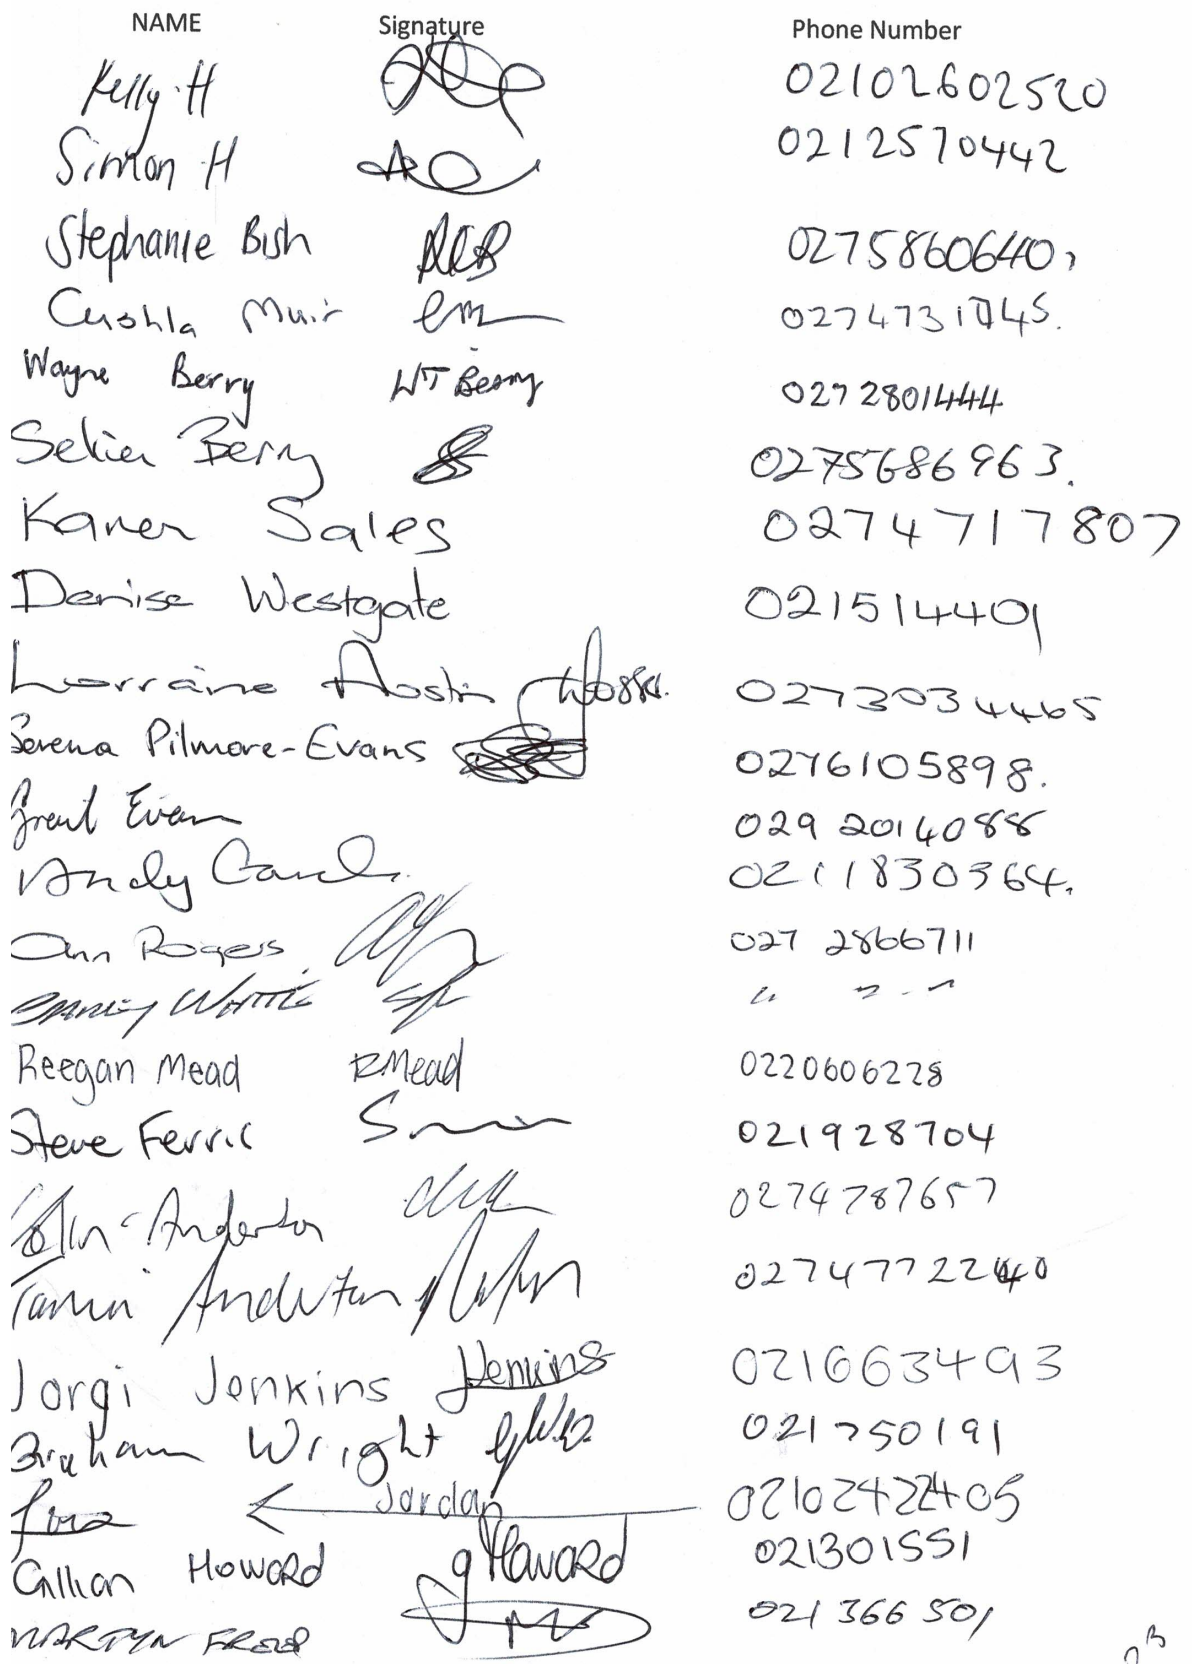 NAME Signature Phone Number
Kelly H 02102602520
Simon H 0212570442
Stephanie Bish 0275860640,
Cushla Muir cm 0274731745.
Wayne Berry WT Berry 0272801444
Berry 0275686963.
Karen Sales 0274717807
Denise Westgate 021514401
Lorraine Austin 0273034465
Serena Pilmore-Evans 0276105898.
Grant Evans 029 2014088
Andy 02111830364.
Ann Rogers 027 2866711
" " - "
Reegan Mead RMead 0220606228
Steve Ferric 021928704
Colin Anderton 0274787657
Anderton 0274772240
Jorgi Jenkins JJenkins 021663493
Graham Wright 021750191
Jordan 02102422405
Gillian Howard gHoward 021301551
MARTYN 021 366 501